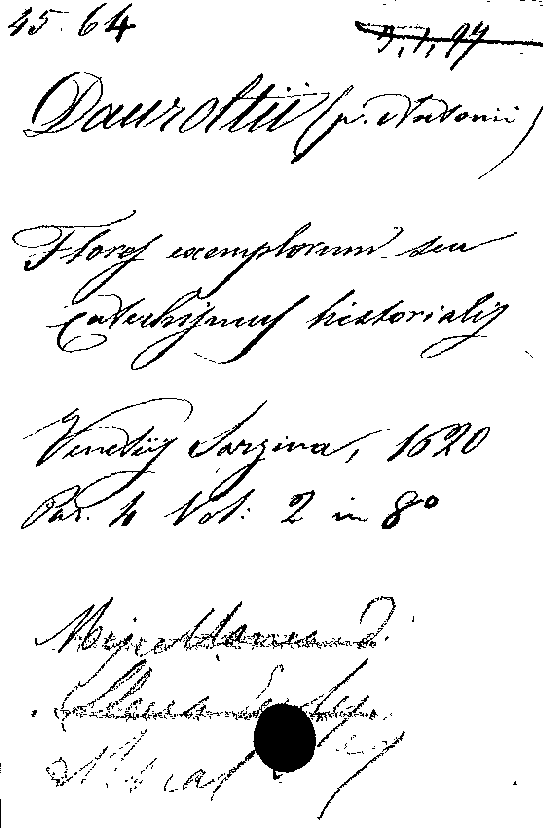 45.64 3,1,97
Dauroltii (p. Antonii)
Flores exemplorum seu
Catechismus historialis
Venetiis Sarzina, 1620
Par. 4 Vol: 2 in 8º
Miscellanea D.